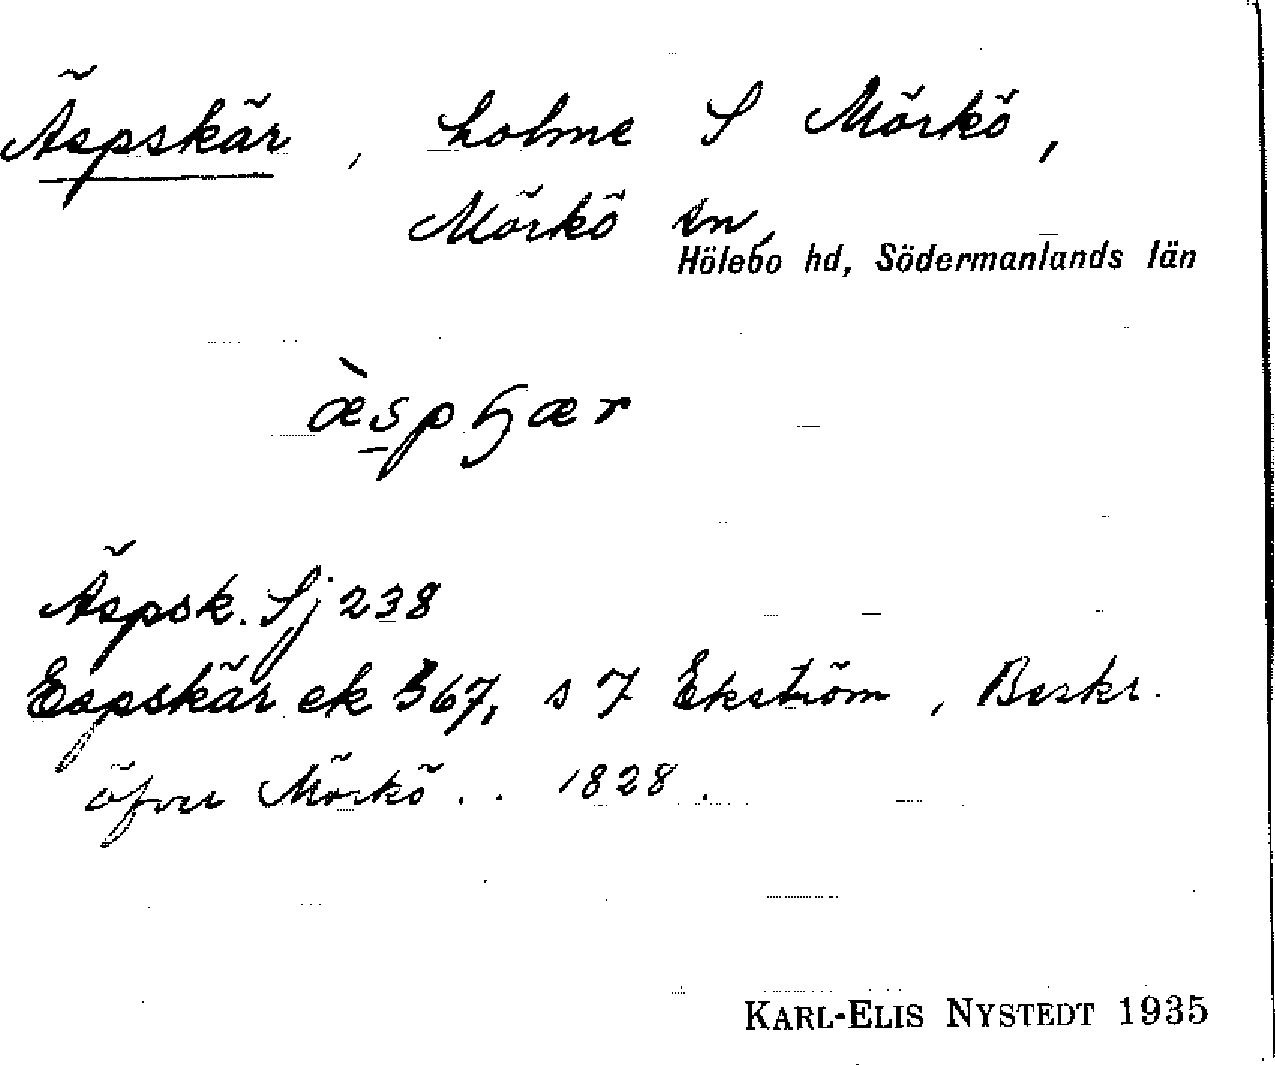 Äspskär, holme S Mörkö,
Mörkö sn,
Hölebo hd, Södermanlands län
æ̀spɧær
Äspsk. Sj 238
Espskär ek 567, s 7 Ekström, Beskr.
öfver Mörkö . . 1828.
KARL-ELIS NYSTEDT 1935